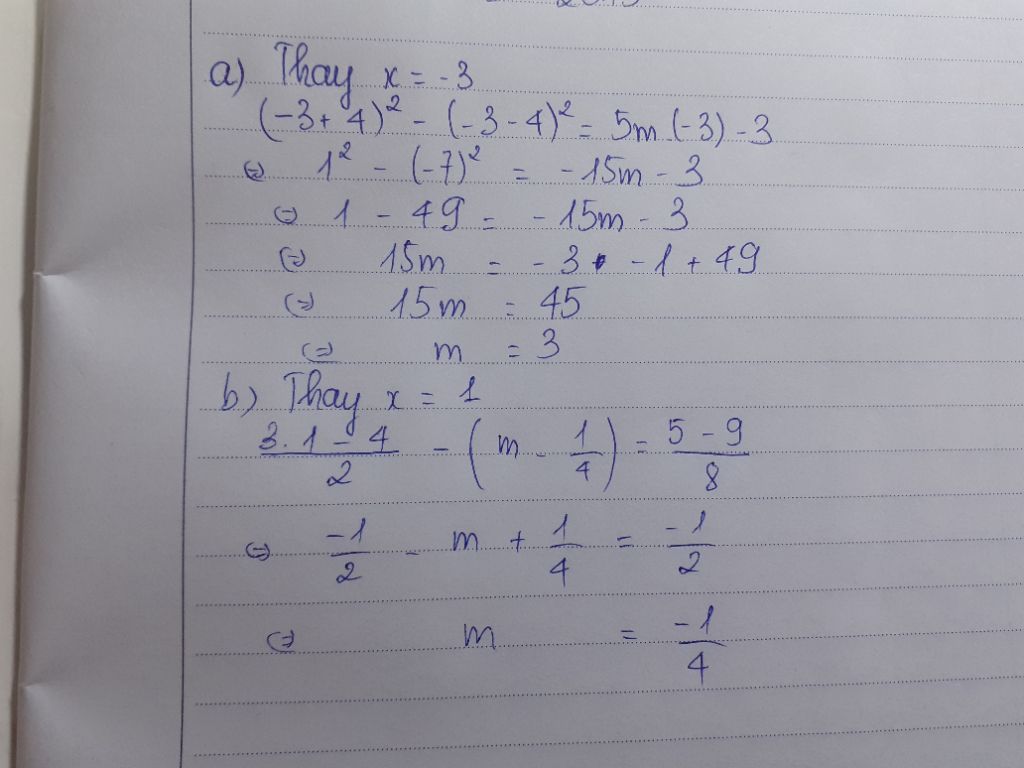 a) Thay x = -3
(-3 + 4)² - (-3 - 4)² = 5m.(-3) - 3
⇔ 1² - (-7)² = -15m - 3
⇔ 1 - 49 = -15m - 3
⇔ 15m = -3 - 1 + 49
⇔ 15m = 45
⇔ m = 3
b) Thay x = 1
(3.1 - 4)/2 - (m - 1/4) = (5 - 9)/8
⇔ -1/2 - m + 1/4 = -1/2
⇔ m = -1/4